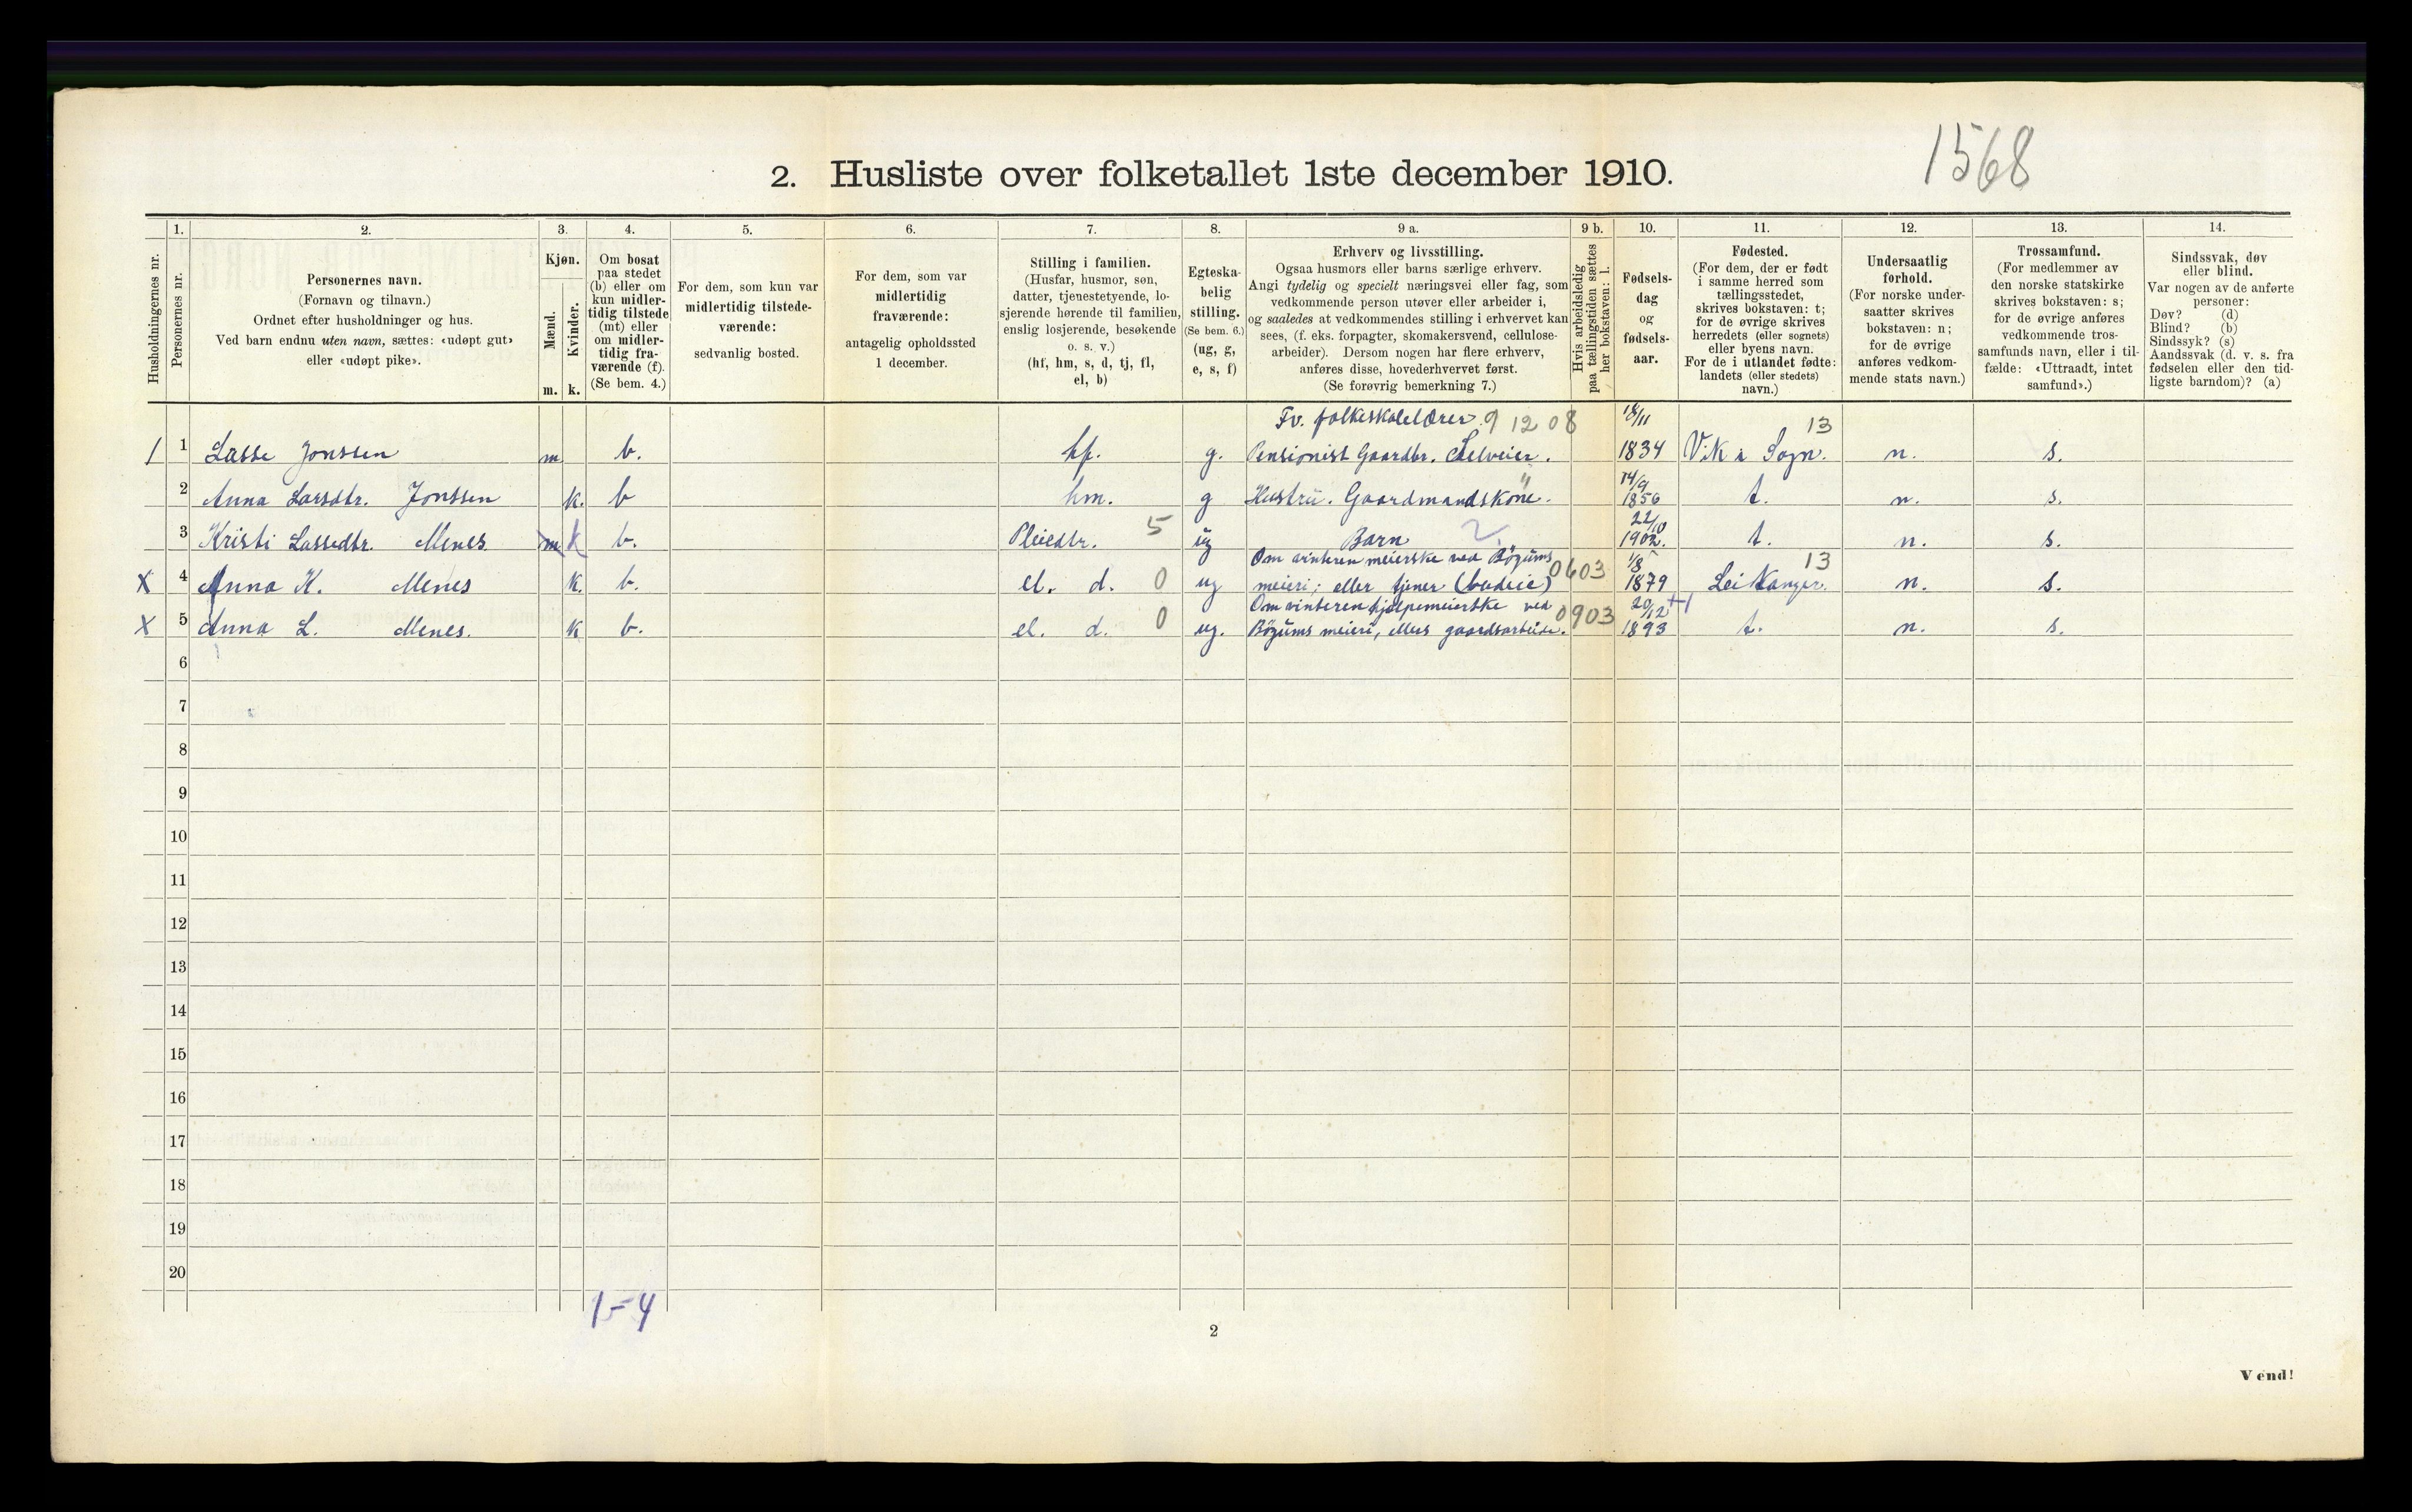 1568
2. Husliste over folketallet 1ste december 1910.
Husholdningernes nr.
1.
Personernes nr.
2.
Personernes navn.
(Fornavn og tilnavn.)
Ordnet efter husholdninger og hus.
Ved barn endnu uten navn, sættes: «udøpt gut»
eller «udøpt pike».
3.
Kjøn.
Mænd.
Kvinder.
m. k.
4.
Om bosat
paa stedet
(b) eller om
kun midler-
tidig tilstede
(mt) eller
om midler-
tidig fra-
værende (f).
(Se bem. 4.)
5.
For dem, som kun var
midlertidig tilstede-
værende:
sedvanlig bosted.
6.
For dem, som var
midlertidig
fraværende:
antagelig opholdssted
1 december.
7.
Stilling i familien.
(Husfar, husmor, søn,
datter, tjenestetyende, lo-
sjerende hørende til familien,
enslig losjerende, besøkende
o. s. v.)
(hf, hm, s, d, tj, fl,
el, b)
8.
Egteska-
belig
stilling.
(Se bem. 6.)
(ug, g,
e, s, f)
9 a.
Erhverv og livsstilling.
Ogsaa husmors eller barns særlige erhverv.
Angi tydelig og specielt næringsvei eller fag, som
vedkommende person utøver eller arbeider i,
og saaledes at vedkommendes stilling i erhvervet kan
sees, (f. eks. forpagter, skomakersvend, cellulose-
arbeider). Dersom nogen har flere erhverv,
anføres disse, hovederhvervet først.
(Se forøvrig bemerkning 7.)
9 b.
Hvis arbeidsledig
paa tællingstiden sættes
her bokstaven: l.
10.
Fødsels-
dag
og
fødsels-
aar.
11.
Fødested.
(For dem, der er født
i samme herred som
tællingsstedet,
skrives bokstaven: t;
for de øvrige skrives
herredets (eller sognets)
eller byens navn.
For de i utlandet fødte:
landets (eller stedets)
navn.)
12.
Undersaatlig
forhold.
(For norske under-
saatter skrives
bokstaven: n;
for de øvrige
anføres vedkom-
mende stats navn.)
13.
Trossamfund.
(For medlemmer av
den norske statskirke
skrives bokstaven: s;
for de øvrige anføres
vedkommende tros-
samfunds navn, eller i til-
fælde: «Uttraadt, intet
samfund».)
14.
Sindssvak, døv
eller blind.
Var nogen av de anførte
personer:
Døv? (d)
Blind? (b)
Sindssyk? (s)
Aandssvak (d. v. s. fra
fødselen eller den tid-
ligste barndom)? (a)
Fv. folkeskolelærer 9 12 08 /11 13
1 1 Lasse Jonssen m b. hf. g. Pensionist Gaardbr. Selveier. 1834 Vik i Sogn. n. s.
14/9
2 Anna Larsdtr. Jonssen k. b hm. g Hustru. Gaardmandskone. " 1856 t. n. s.
22/10
3 Kristi Lassedtr. Menes m k b. Pleiedtr. 5 ug Barn 1902. t. n. s.
Om vinteren meierske ved Bögums 0603 1/8 13
X 4 Anna K. Menes k. b. el. d. 0 ug meieri; eller tjener (budeie) 1879 Leikanger. n. s.
Om vinteren hjelpemeierske ved 0903 20/12 +1
X 5 Anna L. Menes. k b. el. d. 0 ug. Bögums meieri, ellers gaardsarbeide. 1893 t. n. s.
6
7
8
9
10
11
12
13
14
15
16
17
18
19
20
1-4
2
Vend!